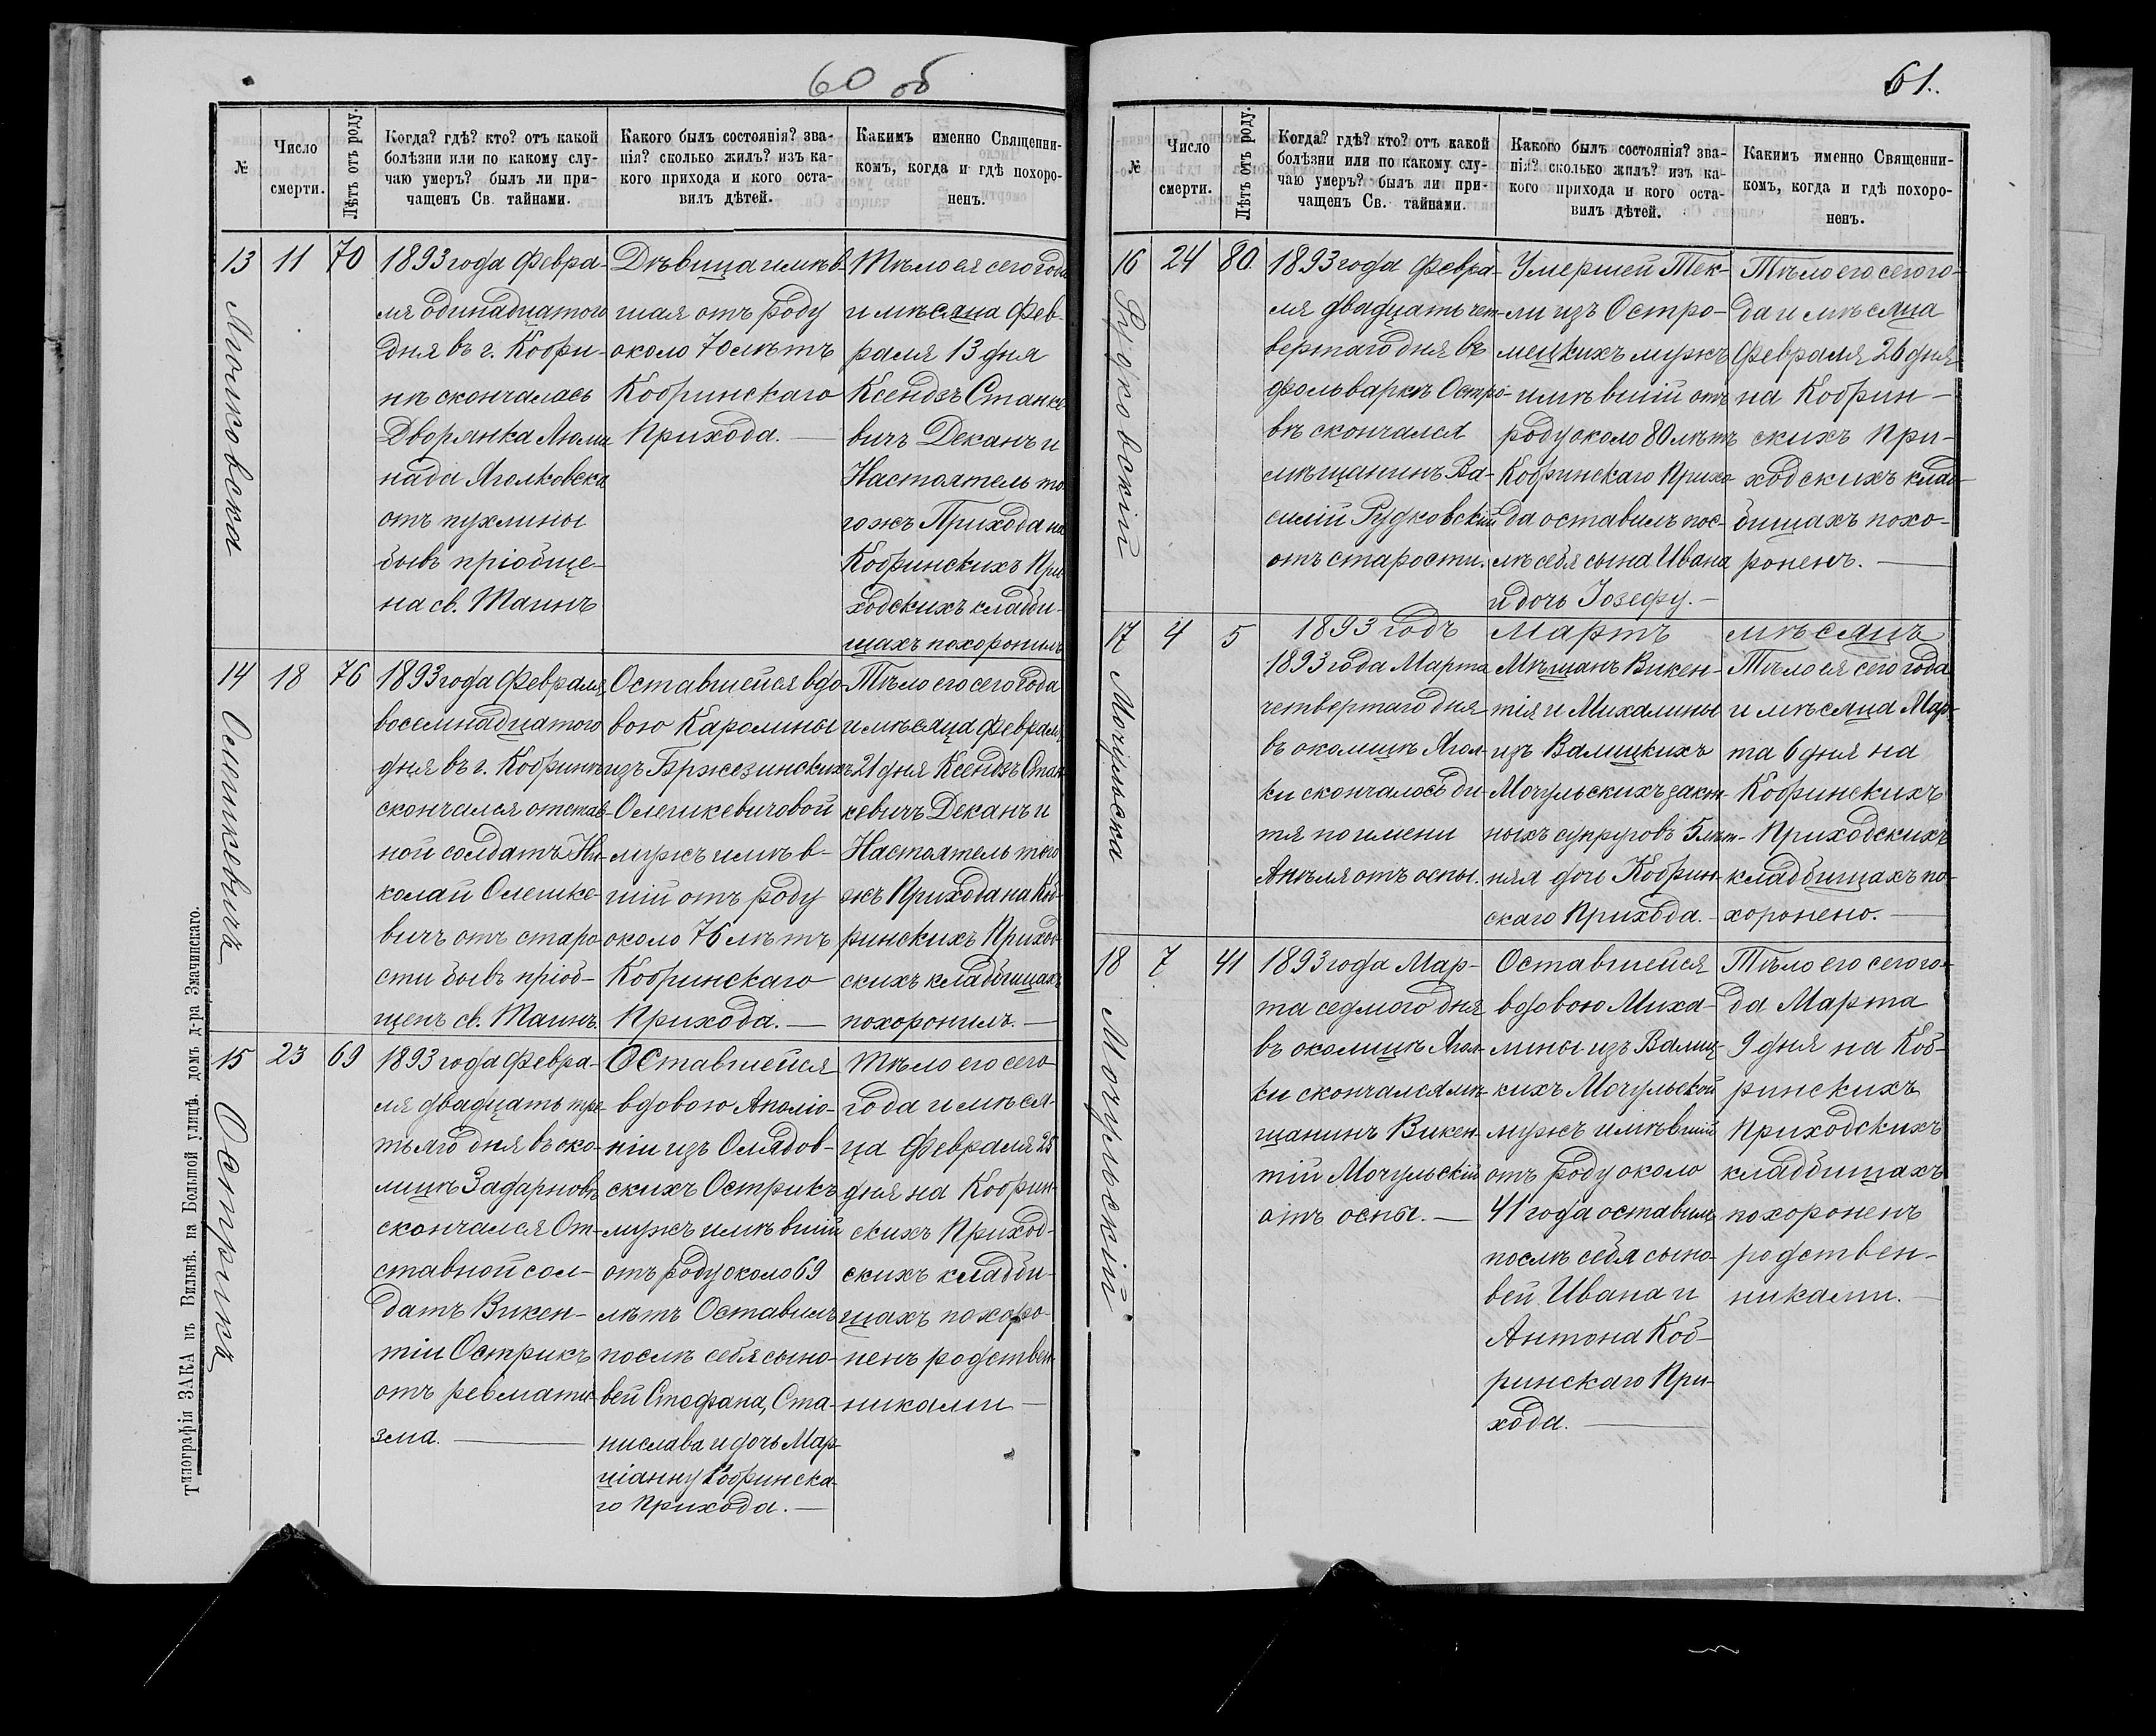 60 об
№
Число
смерти.
Лѣтъ отъ роду.
Когда? гдѣ? кто? отъ какой
болѣзни или по какому слу-
чаю умеръ? былъ ли при-
чащенъ Св. тайнами.
Какого былъ состоянія? зва-
нія? сколько жилъ? изъ ка-
кого прихода и кого оста-
вилъ дѣтей.
Какимъ именно Священни-
комъ, когда и гдѣ похоро-
ненъ.
13
11
70
1893 года Февра-
ля одинадцатого
дня въ г. Кобри-
нѣ скончалась
Дворянка
отъ пухлины
бывъ пріобще-
на св. Таинъ
Дѣвица имѣв-
шая отъ роду
около 70 лѣтъ
Кобринскаго
Прихода. —
Тѣло ея сего года
и мѣсяца Фев-
раля 13 дня
Ксендзъ Станке-
вичъ Деканъ и
Настоятель то-
гожъ Прихода на
Кобринскихъ При-
ходскихъ кладби-
щахъ похоронилъ
14
Олешкевичъ
18
76
1893 года Февраля
восемнадцатого
дня въ г. Кобринѣ
скончался отстав-
ной солдатъ Ни-
колай Олешке-
вичъ отъ старо
сти бывъ пріоб-
щенъ св. Таинъ.
Оставшейся вдо-
вою Каролины
изъ Бржезинскихъ
Олешкевичовой
мужъ имѣв-
шій отъ роду
около 76 лѣтъ
Кобринскаго
Прихода. —
Тѣло его сего года
и мѣсяца Февраля
21 дня Ксендзъ Стан
кевичъ Деканъ и
Настоятель того
жъ Прихода на Коб-
ринскихъ Приход-
скихъ кладбищахъ
похоронилъ. —
15
Острикъ
23
69
1893 года Февра-
ля двадцать тре-
тьяго дня въ око-
лицѣ Задарновѣ
скончался От-
ставной сол-
датъ Викен-
тіи Острикъ
отъ ревмати-
зма. —
Оставшейся
вдовою Аполо-
ніи изъ Олядов-
скихъ Острикъ
мужъ имѣвшій
отъ роду около 69
лѣтъ Оставилъ
послѣ себя сыно-
вей Стефана, Ста-
нислава и дочь Мар-
ціанну Кобринска-
го Прихода. —
Тѣло его сего
года и мѣся-
ца Февраля 25
дня на Кобрин-
скихъ Приход-
скихъ кладби-
щахъ похоро-
ненъ родствен-
никами —
Типографія ЗАКА въ Вильнѣ. на Большой улицѣ. домъ д-ра Змачинскаго.
61.
№
Число
смерти.
Лѣтъ отъ роду.
Когда? гдѣ? кто? отъ какой
болѣзни или по какому слу-
чаю умеръ? былъ ли при-
чащенъ Св. тайнами.
Какого былъ состоянія? зва-
нія? сколько жилъ? изъ ка-
кого прихода и кого оста-
вилъ дѣтей.
Какимъ именно Священни-
комъ, когда и гдѣ похоро-
ненъ.
16
Рудковскій
24
80
1893 года Февра-
ля двадцать чет-
вертаго дня въ
фольваркѣ Остро-
вѣ скончался
мѣщанинъ Ва-
силій Рудковскій
отъ старости.
Умершей Тек-
ли изъ Остро-
мецкихъ мужъ
имѣвшій отъ
роду около 80 лѣтъ
Кобринскаго Прихо-
да оставилъ пос-
лѣ себя сына Ивана
и дочь Іозефу. —
Тѣло его сего го-
да и мѣсяца
Февраля 26 дня
на Кобрин-
скихъ При-
ходскихъ клад-
бищахъ похо-
роненъ. —
1893 годъ Мартъ мѣсяцъ
17
Мочульска
4
5
1893 года Марта
четвертаго дня
въ околицѣ Ягел-
ки скончалось ди-
тя по имени
Анеля отъ оспы.
Мѣщанъ Викен-
тія и Михалины
изъ Валицкихъ
Мочульскихъ закон-
ныхъ супруговъ 5 лѣт-
няя дочь Кобрин-
скаго Прихода. —
Тѣло ея сего года
и мѣсяца Мар-
та 6 дня на
Кобринскихъ
Приходскихъ
кладбищахъ по-
хоронено. —
18
Мочульскій
7
41
1893 года Мар-
та седмого дня
въ околицѣ Ягел-
ки скончался мѣ-
щанинъ Викен-
тій Мочульскій
отъ оспы. —
Оставшейся
вдовою Миха-
лины изъ Валиц-
кихъ Мочульской
мужъ имѣвшій
отъ роду около
41 года оставилъ
послѣ себя сыно-
вей Ивана и
Антона Коб-
ринскаго При-
хода. —
Тѣло его сего го-
да Марта
9 дня на Коб-
ринскихъ
Приходскихъ
кладбищахъ
похороненъ
родствен-
никами. —